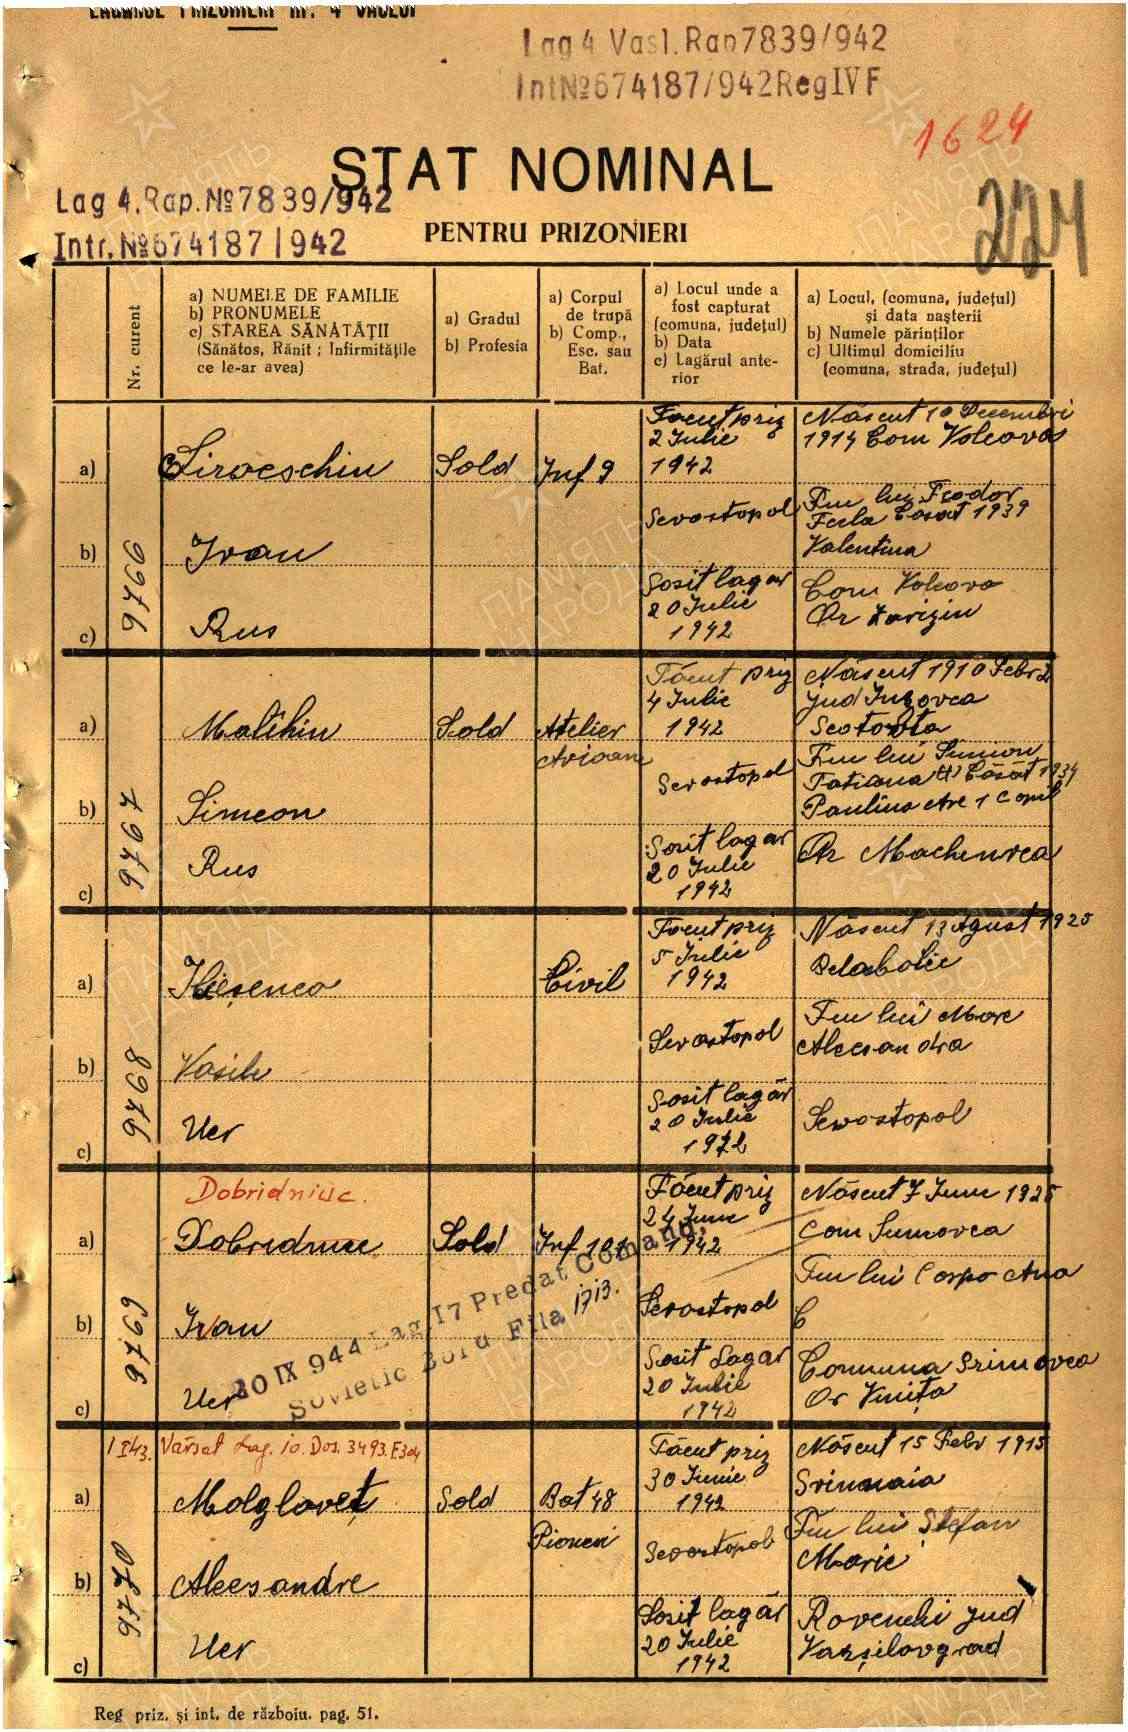 LAGĂRUL PRIZONIERI Nr. 4 VASLUI
Lag 4 Vasl. Rap 7839/942
Int № 674187/942 Reg IV F
1624
224
STAT NOMINAL
Lag 4. Rap. № 7839/942
PENTRU PRIZONIERI
Intr. № 674187/942
Nr. curent
a) NUMELE DE FAMILIE
b) PRONUMELE
c) STAREA SĂNĂTĂȚII
(Sănătos, Rănit ; Infirmitățile
ce le-ar avea)
a) Gradul
b) Profesia
a) Corpul
de trupă
b) Comp.,
Esc. sau
Bat.
a) Locul unde a
fost capturat
(comuna, județul)
b) Data
c) Lagărul ante-
rior
a) Locul, (comuna, județul)
și data nașterii
b) Numele părinților
c) Ultimul domiciliu
(comuna, strada, județul)
9766
a) Siroeschin
b) Ivan
c) Rus
Sold
Inf 9
Făcut priz
2 Iulie
1942
Sevostopol
Sosit lagăr
20 Iulie
1942
Născut 10 Decembri
1914 Com Volcova
Fiu lui Feodor
Casat 1939
Valentina
Com Volcova
Or
9767
a) Malihin
b) Simeon
c) Rus
Sold
Atelier
Avioane
Făcut priz
4 Iulie
1942
Sevostopol
Sosit lagăr
20 Iulie
1942
Născut 1910 Febr 2
jud
Fiu lui Simion
Tatiana Căsăt 1934
Paulina Are 1 Copil
Or Machenvca
9768
a) Iliesenco
b) Vasile
c) Ucr
Civil
Făcut priz
5 Iulie
1942
Sevostopol
Sosit lagăr
20 Iulie
1942
Născut 13 Agust 1925
Fiu lui Marc
Alecsandra
Sevostopol
9769
Dobridniuc.
a) Dobridniuc
b) Ivan
c) Ucr
Sold
Inf 101
Făcut priz
24 Iunie
1942
Sevostopol
Sosit Lagăr
20 Iulie
1942
Născut 7 Iunie 1925
Com Sumovca
Fiu lui Carpo Ana
C
Comuna
Or Vinița
20 IX 944 Lag. 17 Predat Comand.
Sovietic Fila 1713.
9770
1 I 43. Vărsat Lag. 10. Dos. 3493. F 304
a) Molgloveț
b) Alecsandre
c) Ucr
Sold
Bat 48
Pioneri
Făcut priz
30 Iunie
1942
Sevostopol
Sosit lagăr
20 Iulie
1942
Născut 15 Febr 1915
Fiu lui Ștefan
Marie
Rovenchi jud
Varșilovgrad
Reg priz. și int. de războiu. pag. 51.
ПАМЯТЬ
НАРОДА